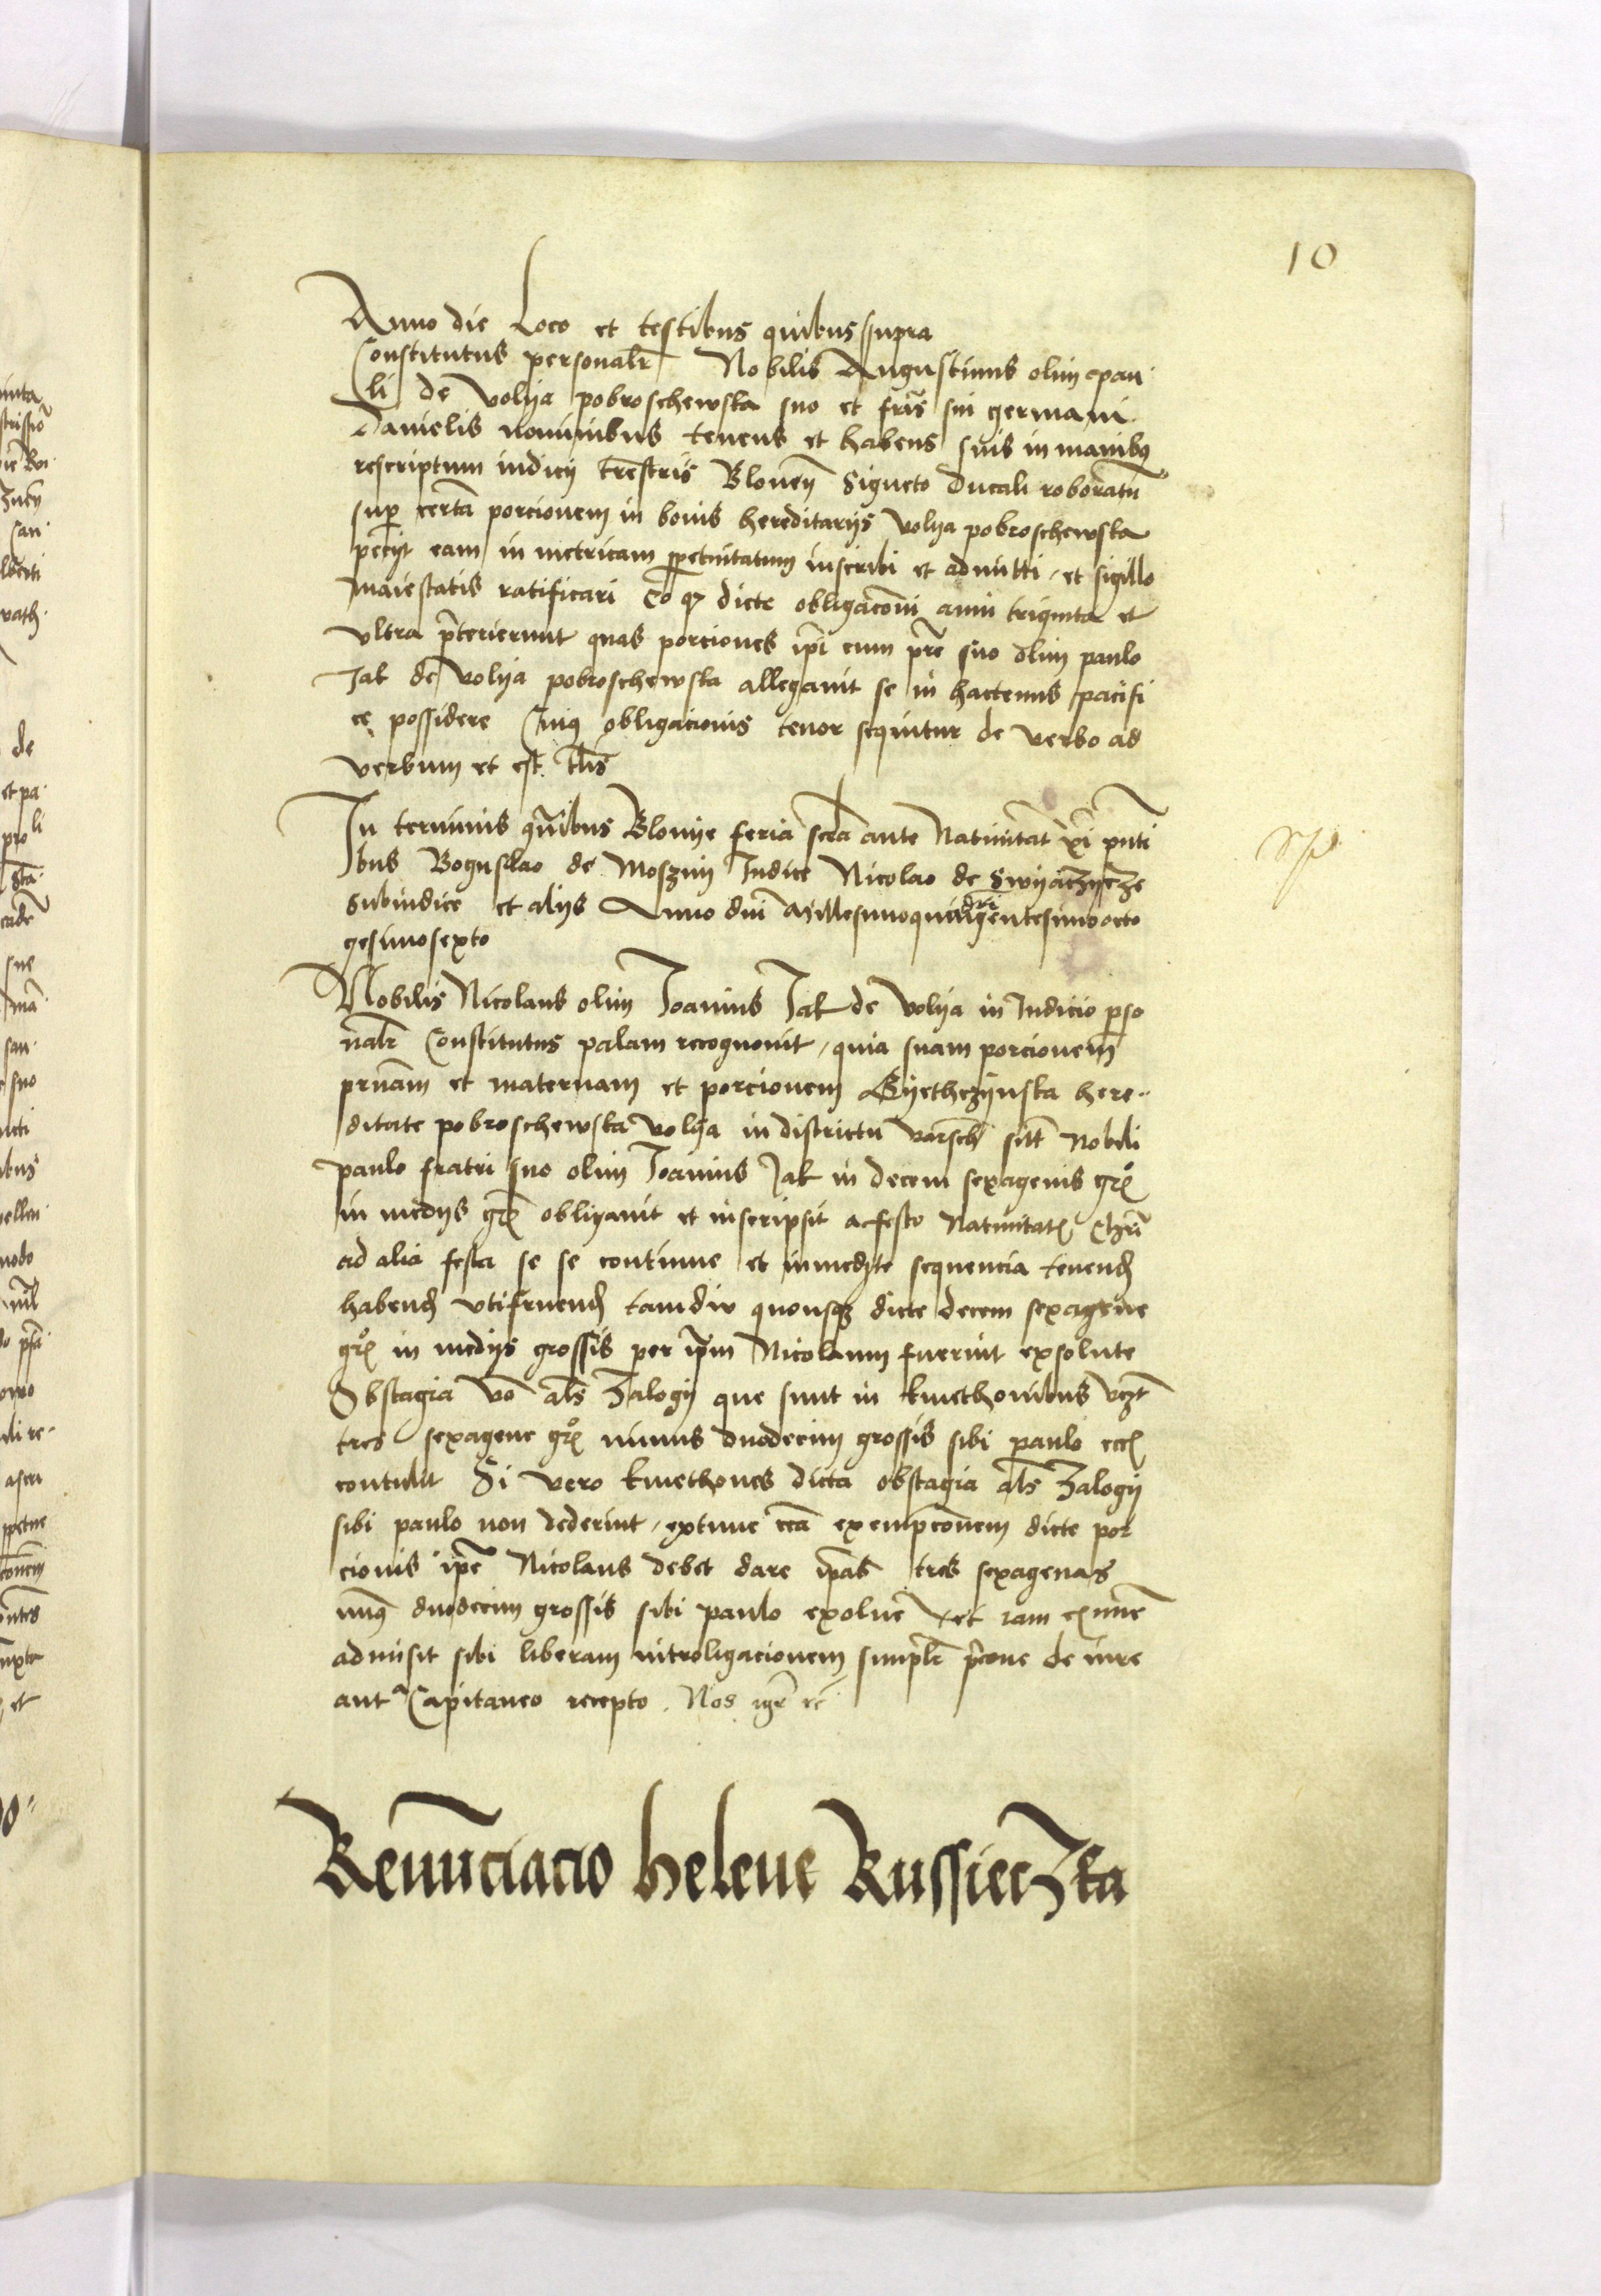 10
Anno die Loco et testibus quibus supra
Constitutus personalr Nobilis Augustinus olim pau
li de Volya pobroschewska suo et fris sui germani
Danielis nominibus tenens et habens suis in manibus
rescriptum iudicij trestris Blonen Signeto Ducali roboratu
super certa porcionem in bonis hereditarijs volya pobroschewska
pecijt eam in metricam perpetuitatum inscribi et admitti, et sigillo
maiestatis ratificari Eo q dicte obligaconi anni triginta et
vltra preterierunt quas porciones ipi cum pre suo olim paulo
Jak de volya pobroschewska allegauit se in hactenus pacifi
ce possidere Cuius obligacionis tenor sequitur de verbo ad
verbum et est tlis
In terminis gnalibus Blonye feria scda ante Natiuitat xpi pnti
bus Boguslao de Moszny Judice Nicolao de Swyaczycze
Subiudice et alijs Anno dni Millesimoquadringentesimoocto
gesimosexto
Nobilis Nicolaus olim Joannis Jak de Volya in Judicio perso
nalr Constitutus palam recognouit, quia suam porcionem
prnam et maternam et porcionem Gyethczynska here
ditate pobroschewska volya in districtu varsch sitt Nobili
paulo fratri suo olim Joannis Jak in decem sexagenis gro
in medijs gro obligauit et inscripsit a festo Natiuitatis Chri
ad alia festa se se continue et inmedyte sequencia tenend
habend vtifruend tamdiu quousque dicte decem sexagene
gro in medijs grossis per ipm Nicolaum fuerint exsolute
Obstagia vo als Zalogy que sunt in kmethonibus vczt
tres sexagene gro minus duodecim grossis sibi paulo
contulit Si vero kmethones dicta obstagia als Zalogy
sibi paulo non dederint, extunc exempconem dicte por
cionis ipe Nicolaus debet dare ipas tres sexagenas
minus duodecim grossis sibi paulo exoluere et
admisit sibi liberam introligacionem simplr de iure
Capitaneo recepto. Nos
Renunciacio helene Russieczka